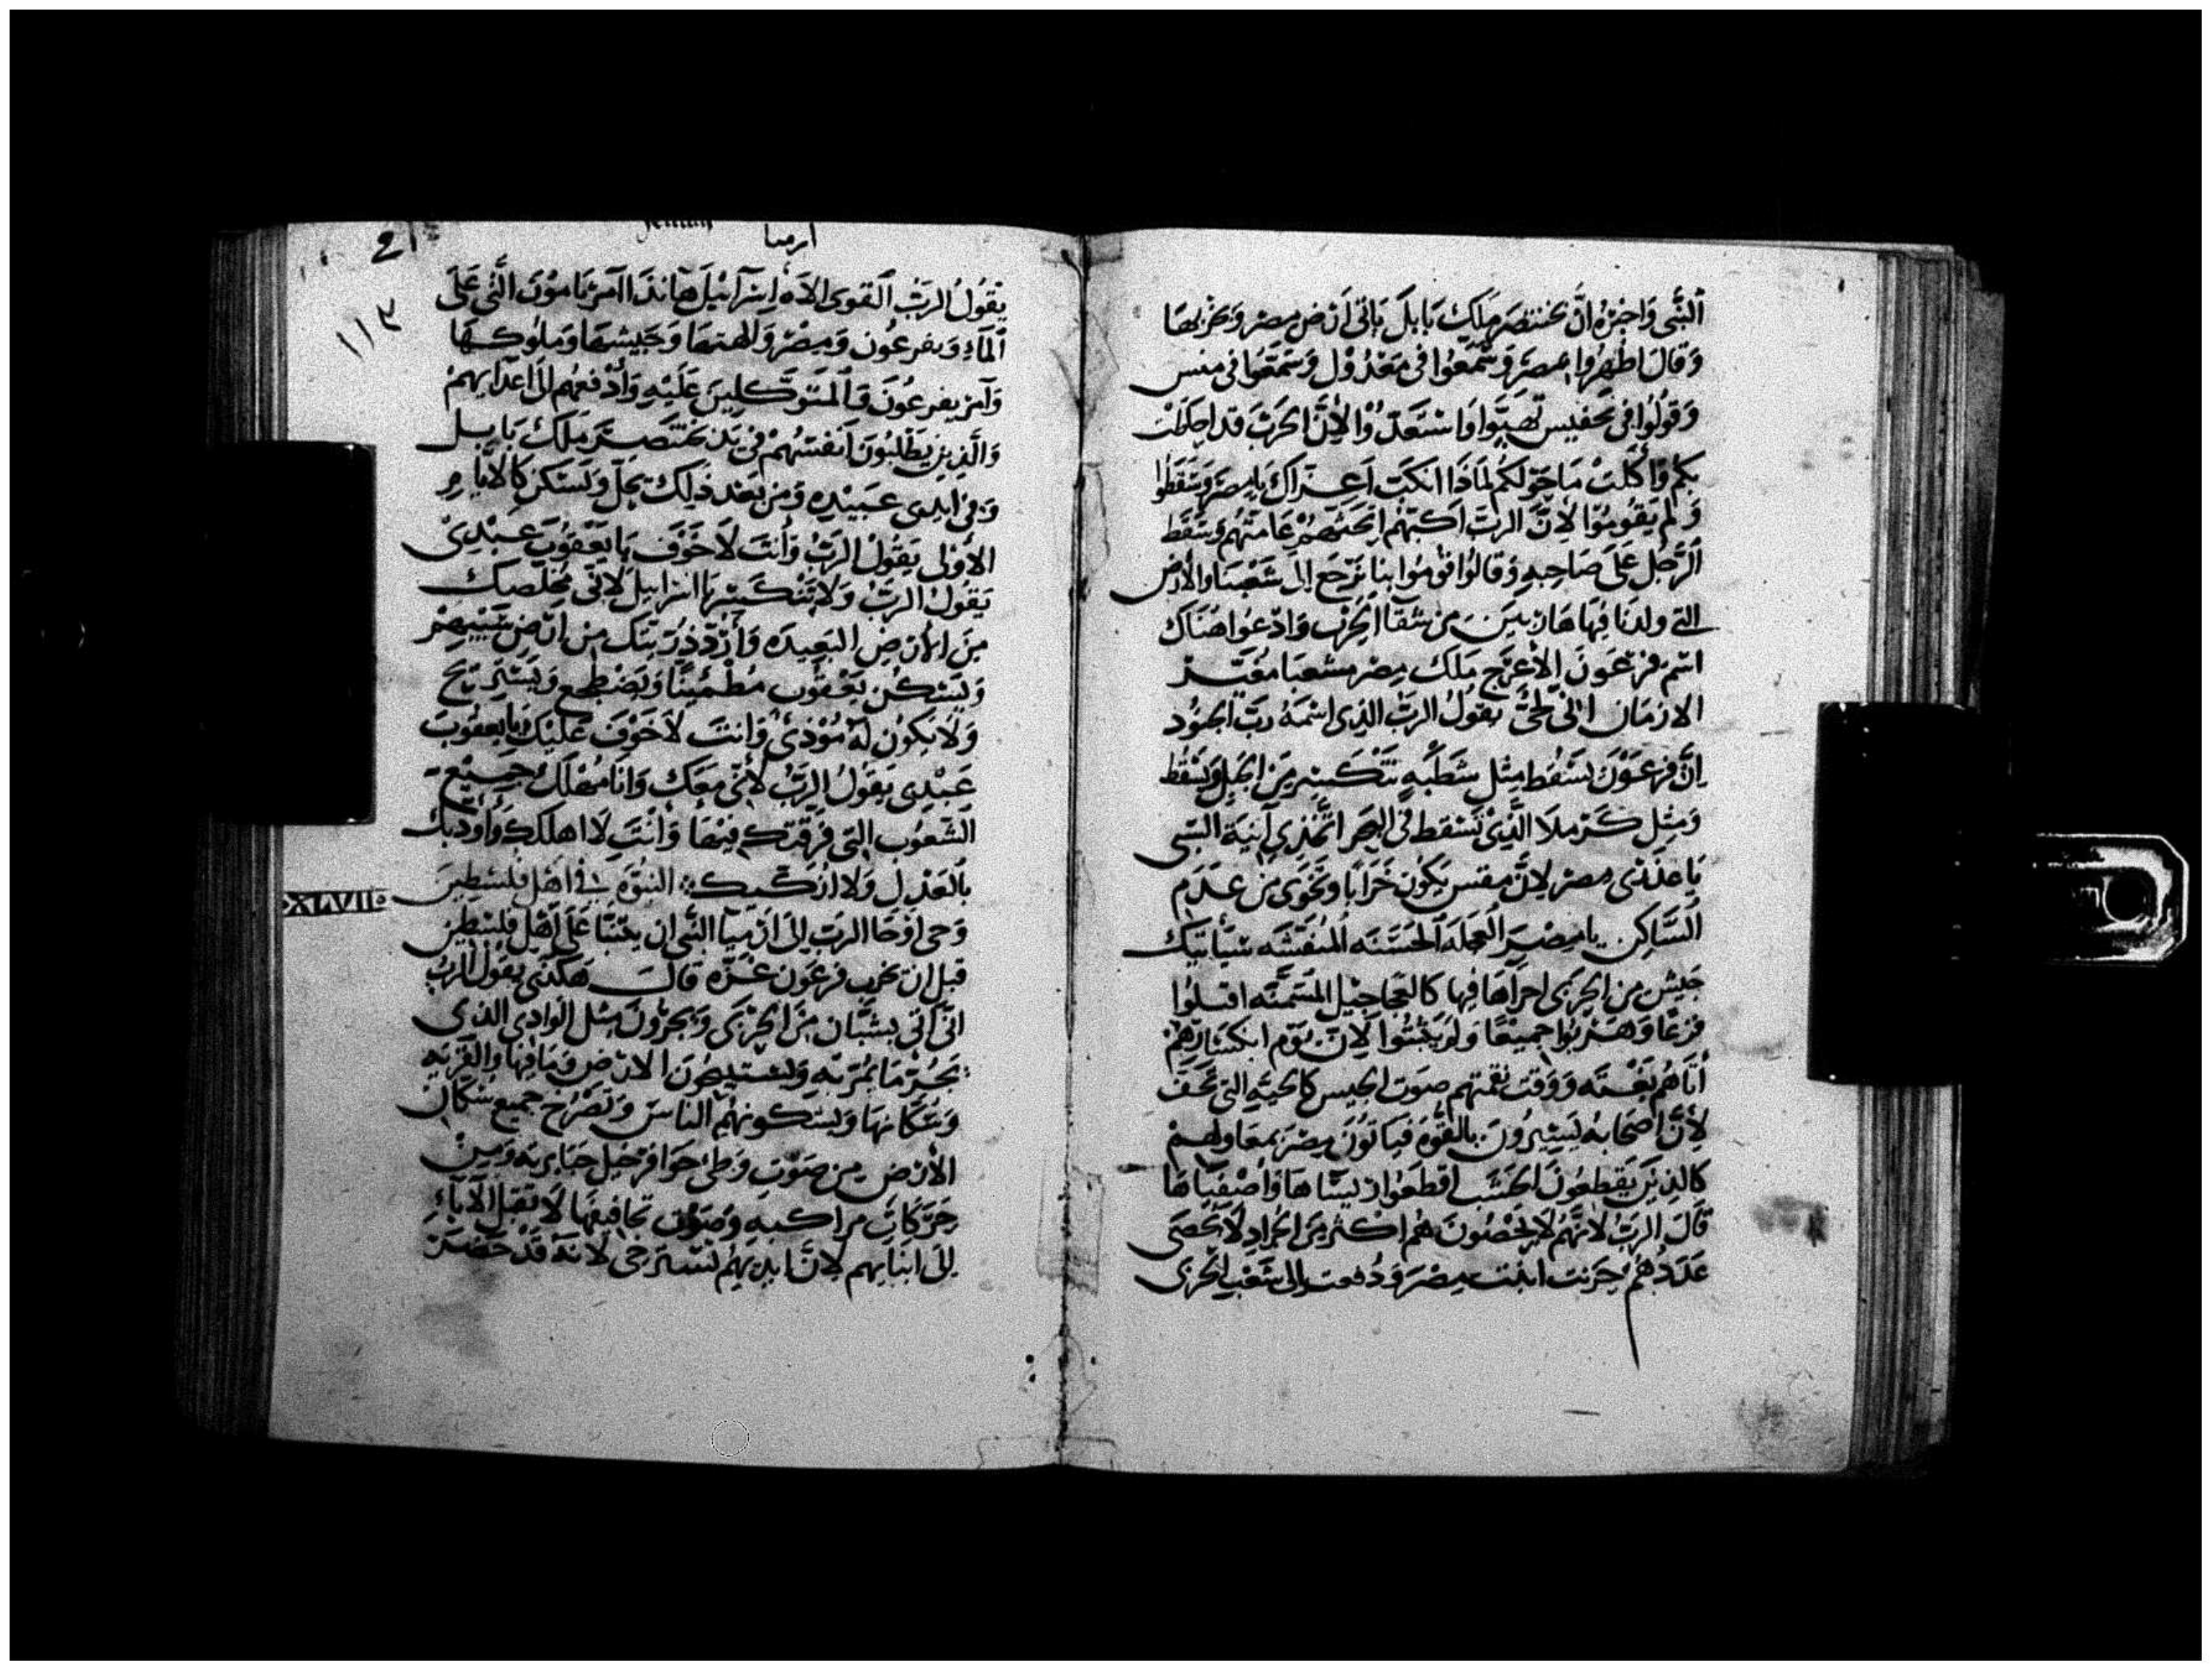 النبى واخبره ان بختنصر ملك بابل ياتى ارض مصر ويخربها
وقال اظهروا بمصر وسمعوا فى مغدول وسمعوا فى منس
وقولوا فى تحفيس تهيوا واستعدوا لان الحرب قد احاطت
بكم واكلت ما حولكم لماذا انكب اعزاك يا مصر وسقطوا
ولم يقوموا لان الرب اكبهم عامتهم وسقط
الرجل على صاحبه وقالوا قوموا بنا نرجع الى شعبنا والارض
التى ولدنا فيها هاربين من الحرب وادعوا هناك
اسم فرعون الاعرج ملك مصر
الازمان انى لحى يقول الرب الذى اسمه رب الجنود
ان فرعون يسقط مثل شطبه تنكسر من الجبل ويسقط
ومثل كرملا الذى تسقط فى البحر اتخذى آنية السبى
يا عذرى مصر لان مفس يكون خرابا وتخوى من عدم
الساكن يا مصر العجله الحسنه المنفشه سياتيك
جيش من الحربى اجراها فيها كالعجاجيل المسمنه اقبلوا
فزعا وهربوا جميعا ولم يثبتوا لان يوم انكسارهم
اتاهم بغته ووقت نقمتهم صوت الجيس كالحيه التى تحف
لان اصحابه يسيرون بالقوه فياتون مصر بمعاولهم
كالذين يقطعون الخشب اقطعوا
قال الرب لانهم لا يحصون هم اكثر من الجراد لا يحصى
عددهم خزيت ابنت مصر ودفعت الى شعب الحربى
21
Jerem
ارميا
يقول الرب القوى الاه اسرآئيل هانذا آمر بامون التى على
المآء وبفرعون ومصر والهتها وجيشها وملوكها
١١٣
وآمر بفرعون والمتوكلين عليه وادفعهم الى اعدآيهم
والذين يطلبون انفسهم فى يد بختنصر ملك بابل
وفى ايدى عبيده ومن بعد ذلك تحل وتسكن كالايام
الاولى يقول الرب وانت لا تخوف يا يعقوب عبدى
يقول الرب ولا تنكسر يا اسرائيل لانى مخلصك
من الارض البعيده وارد ذريتك من ارض سبيهم
ويسكن يعقوب مطمئنا ويضطجع ويستريح
ولا يكون له موذى وانت لا خوف عليك يا يعقوب
عبدى يقول الرب لانى معك وانا مهلك جميع
الشعوب التى فرقتك فيها وانت لا اهلكك واودبك
بالعدل ولا ازكيك النبوه فى اهل فلسطين
XLVII
وحى اوحا الرب الى ارميا النبى ان يتنبا على اهل فلسطين
قبل ان تخرب فرعون غزه قال هكذى يقول الرب
انى آتى بشبان من الحربى ويجرون مثل الوادى الذى
يجر ما يمر به ويستبيحون الارض وما فيها والقريه
وسكانها ويشكونهم الناس وتصرخ جميع سكان
الارض من صوت وطى حوافر خيل جبابرته ومن
حركات مراكبه وصوت لا تقبل الآباء
الى ابنايهم لان ايديهم تسترخى لانه قد حضر